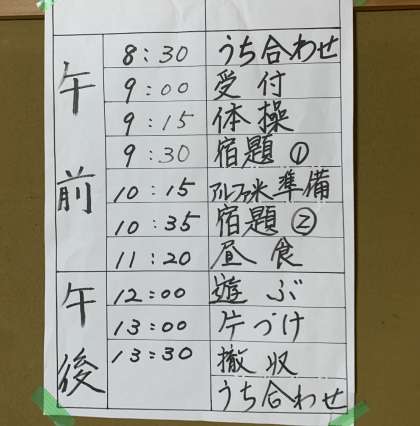 午前
8:30 うち合わせ
9:00 受付
9:15 体操
9:30 宿題①
10:15 アルファ米準備
10:35 宿題②
11:20 昼食
午後
12:00 遊ぶ
13:00 片づけ
13:30 撤収
うち合わせ